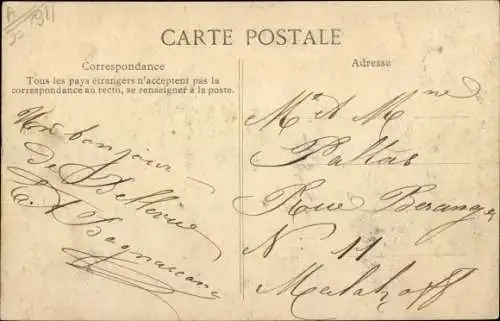 CARTE POSTALE
Correspondance
Tous les pays étrangers n'acceptent pas la
correspondance au recto, se renseigner à la poste.
Adresse
Un bonjour
de Bellevue
Mr et Mme
Pallas
Rue Beranger
N. 11
Malakoff